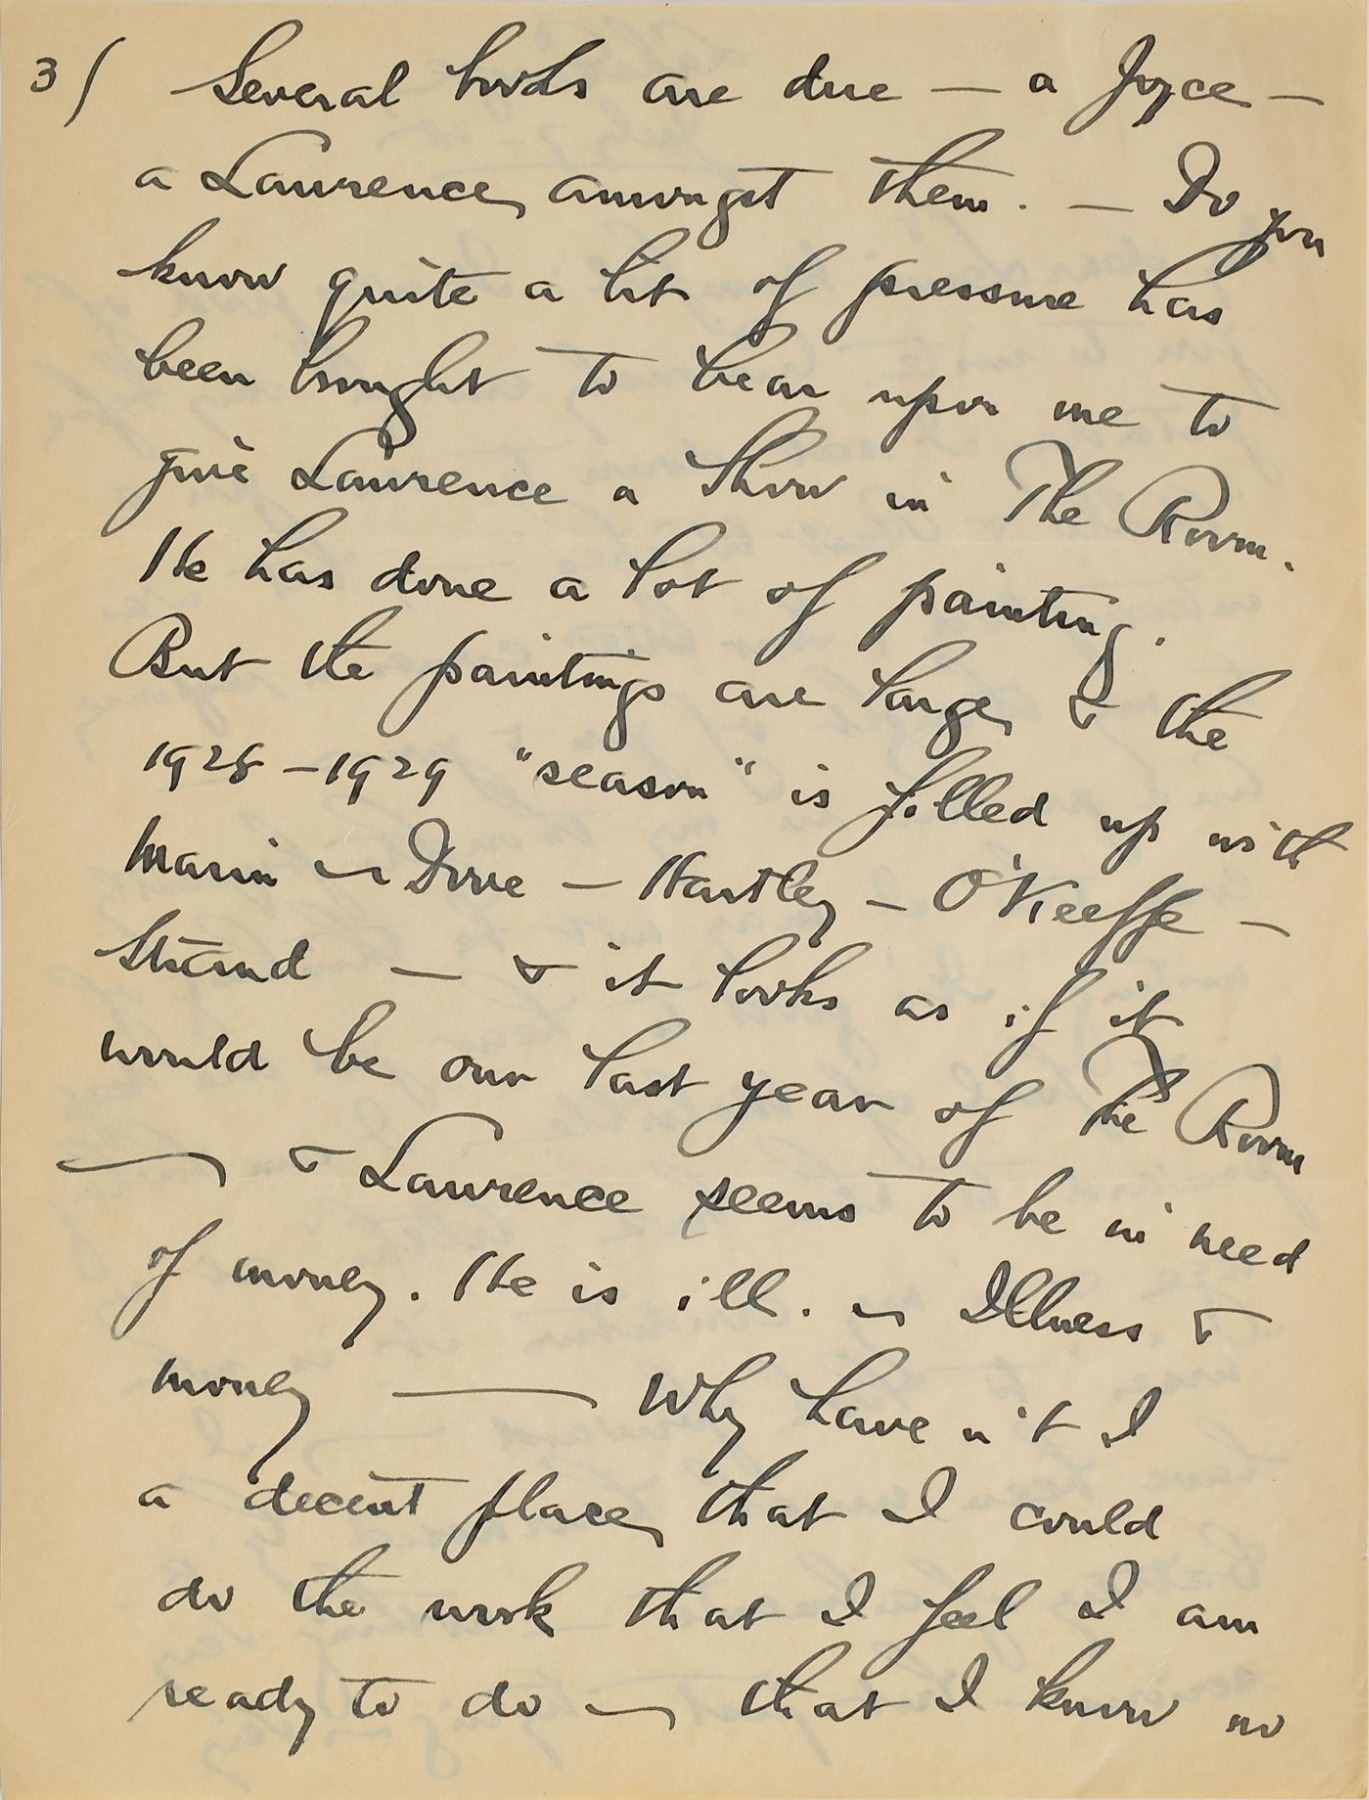 3/ Several books are due — a Joyce —
a Lawrence, amongst them. — Do you
know quite a bit of pressure has
been brought to bear upon me to
give Lawrence a Show in The Room.
He has done a lot of painting.
But the paintings are large, & the
1928 – 1929 "season" is filled up with
Marin — Dove — Hartley — O'Keeffe —
Strand — & it looks as if it
would be our last year of The Room
— & Lawrence seems to be in need
of money. He is ill. — Illness &
money — Why haven't I
a decent place, that I could
do the work that I feel I am
ready to do — that I know no